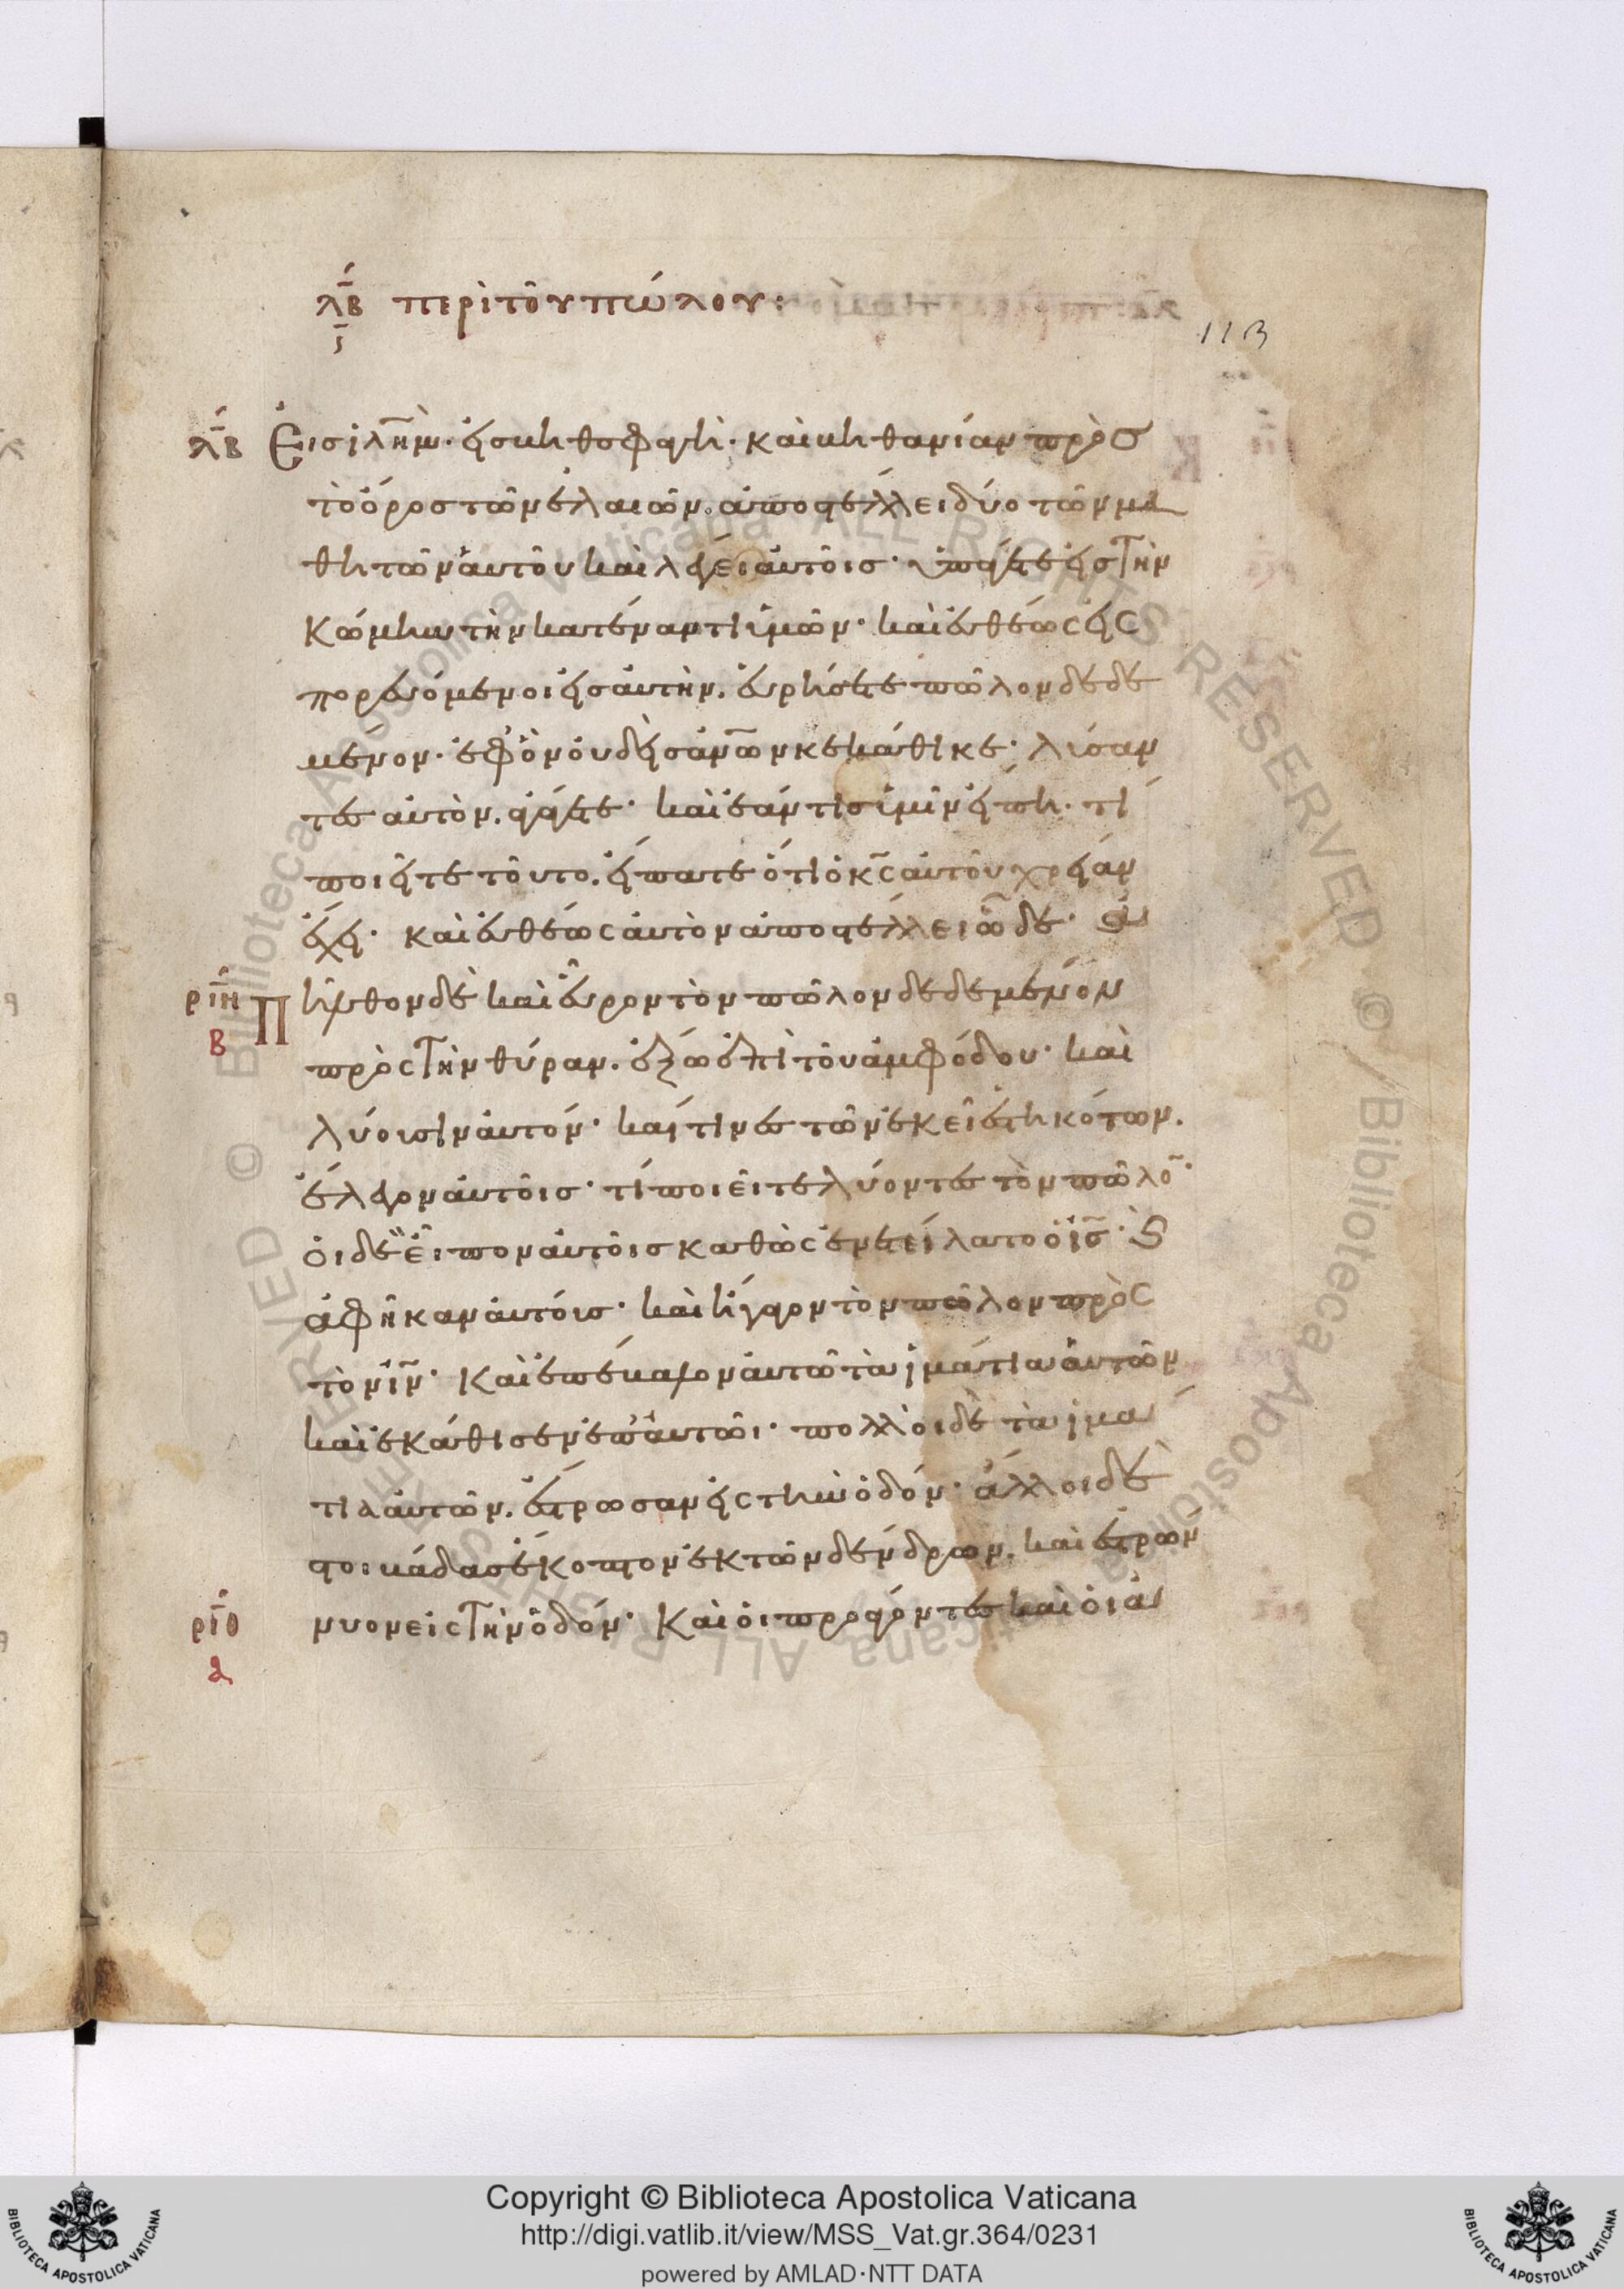 λβ περὶ τοῦ πώλου:
ϛ
113
λβ Εἰς ἱλῆμ· εἰς βηθσφαγὴ· καὶ βηθανίαν πρὸσ
τὸ ὄρος τῶν ἐλαιῶν. ἀποστέλλει δύο τῶν μα
θητῶν αὐτοῦ καὶ λέγει αὐτοῖσ· ὑπάγετε εἰς τὴν
κώμην τὴν κατέναντι ὑμῶν· καὶ εὐθέως εἰσ
πορευόμενοι εἰς αὐτὴν. εὑρήσετε πῶλον δεδε
μένον· ἐφ' ὃν οὐδεὶς ἀνων κεκάθικε· λύσαν
τες αὐτὸν. ἀγάγετε· καὶ ἐάν τις ὑμῖν εἴπη· τί
ποιεῖτε τοῦτο. εἴπατε ὅτι ὁ κς αὐτοῦ χρείαν
ἔχει· καὶ εὐθέως αὐτὸν ἀποστέλλει ὧδε· ἀ
ριη Π ῆλθον δὲ καὶ εὗρον τὸν πῶλον δεδεμένον
β
πρὸς τὴν θύραν. ἔξω ἐπὶ τοῦ ἀμφόδου· καὶ
λύουσιν αὐτόν· καί τινες τῶν ἐκεῖ ἑστηκότων.
ἔλεγον αὐτοῖσ· τί ποιεῖτε λύοντες τὸν πῶλο
οἱ δὲ εἶπον αὐτοῖς καθὼς ἐνετείλατο ὁ ις· καὶ
ἀφῆκαν αὐτούς· καὶ ἤγαγον τὸν πῶλον πρὸς
τὸν ιν· καὶ ἐπέβαλον αὐτῶ τὰ ἱμάτια αὐτῶν
καὶ ἐκάθισεν ἐπ' αὐτῶι· πολλοὶ δὲ τὰ ἱμά
τια αὐτῶν. ἔστρωσαν εἰς τὴν ὁδόν· ἄλλοι δὲ
στοιβάδας ἔκοπτον ἐκ τῶν δένδρων. καὶ ἐστρών
ριθ νυον εἰς τὴν ὁδόν· καὶ οἱ προάγοντες καὶ οἱ ἀ
α
Copyright © Biblioteca Apostolica Vaticana
http://digi.vatlib.it/view/MSS_Vat.gr.364/0231
powered by AMLAD·NTT DATA